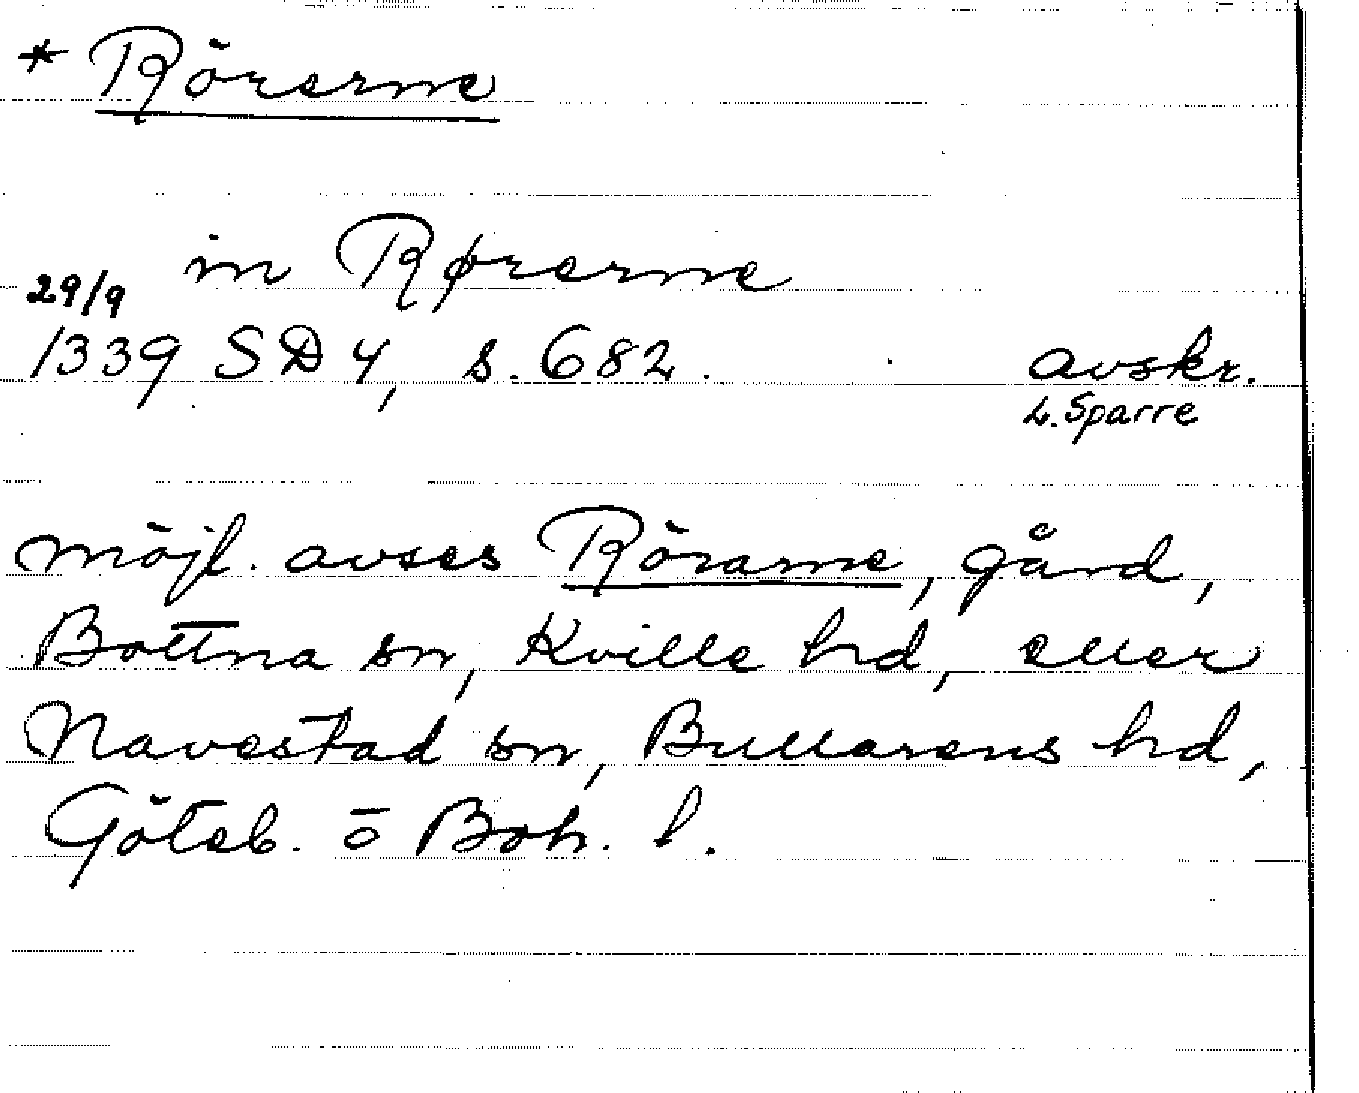 * Rörerne
in Rørerne
29/9
1339 SD 4, s. 682. avskr.
L. Sparre
möjl. avses Rörarne, gård,
Bottna sn, Kville hd, eller
Navestad sn, Bullarens hd,
Göteb. o Boh. l.